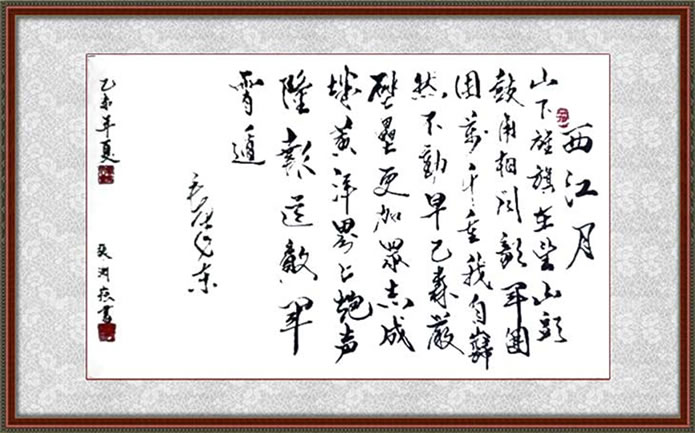 西江月
山下旌旗在望山頭
鼓角相闻敵军圍
困萬千重我自巋
然不動早已森嚴
壁壘更加眾志成
城黄洋界上炮声
隆報道敵军
宵遁
毛泽东
乙未年夏
書